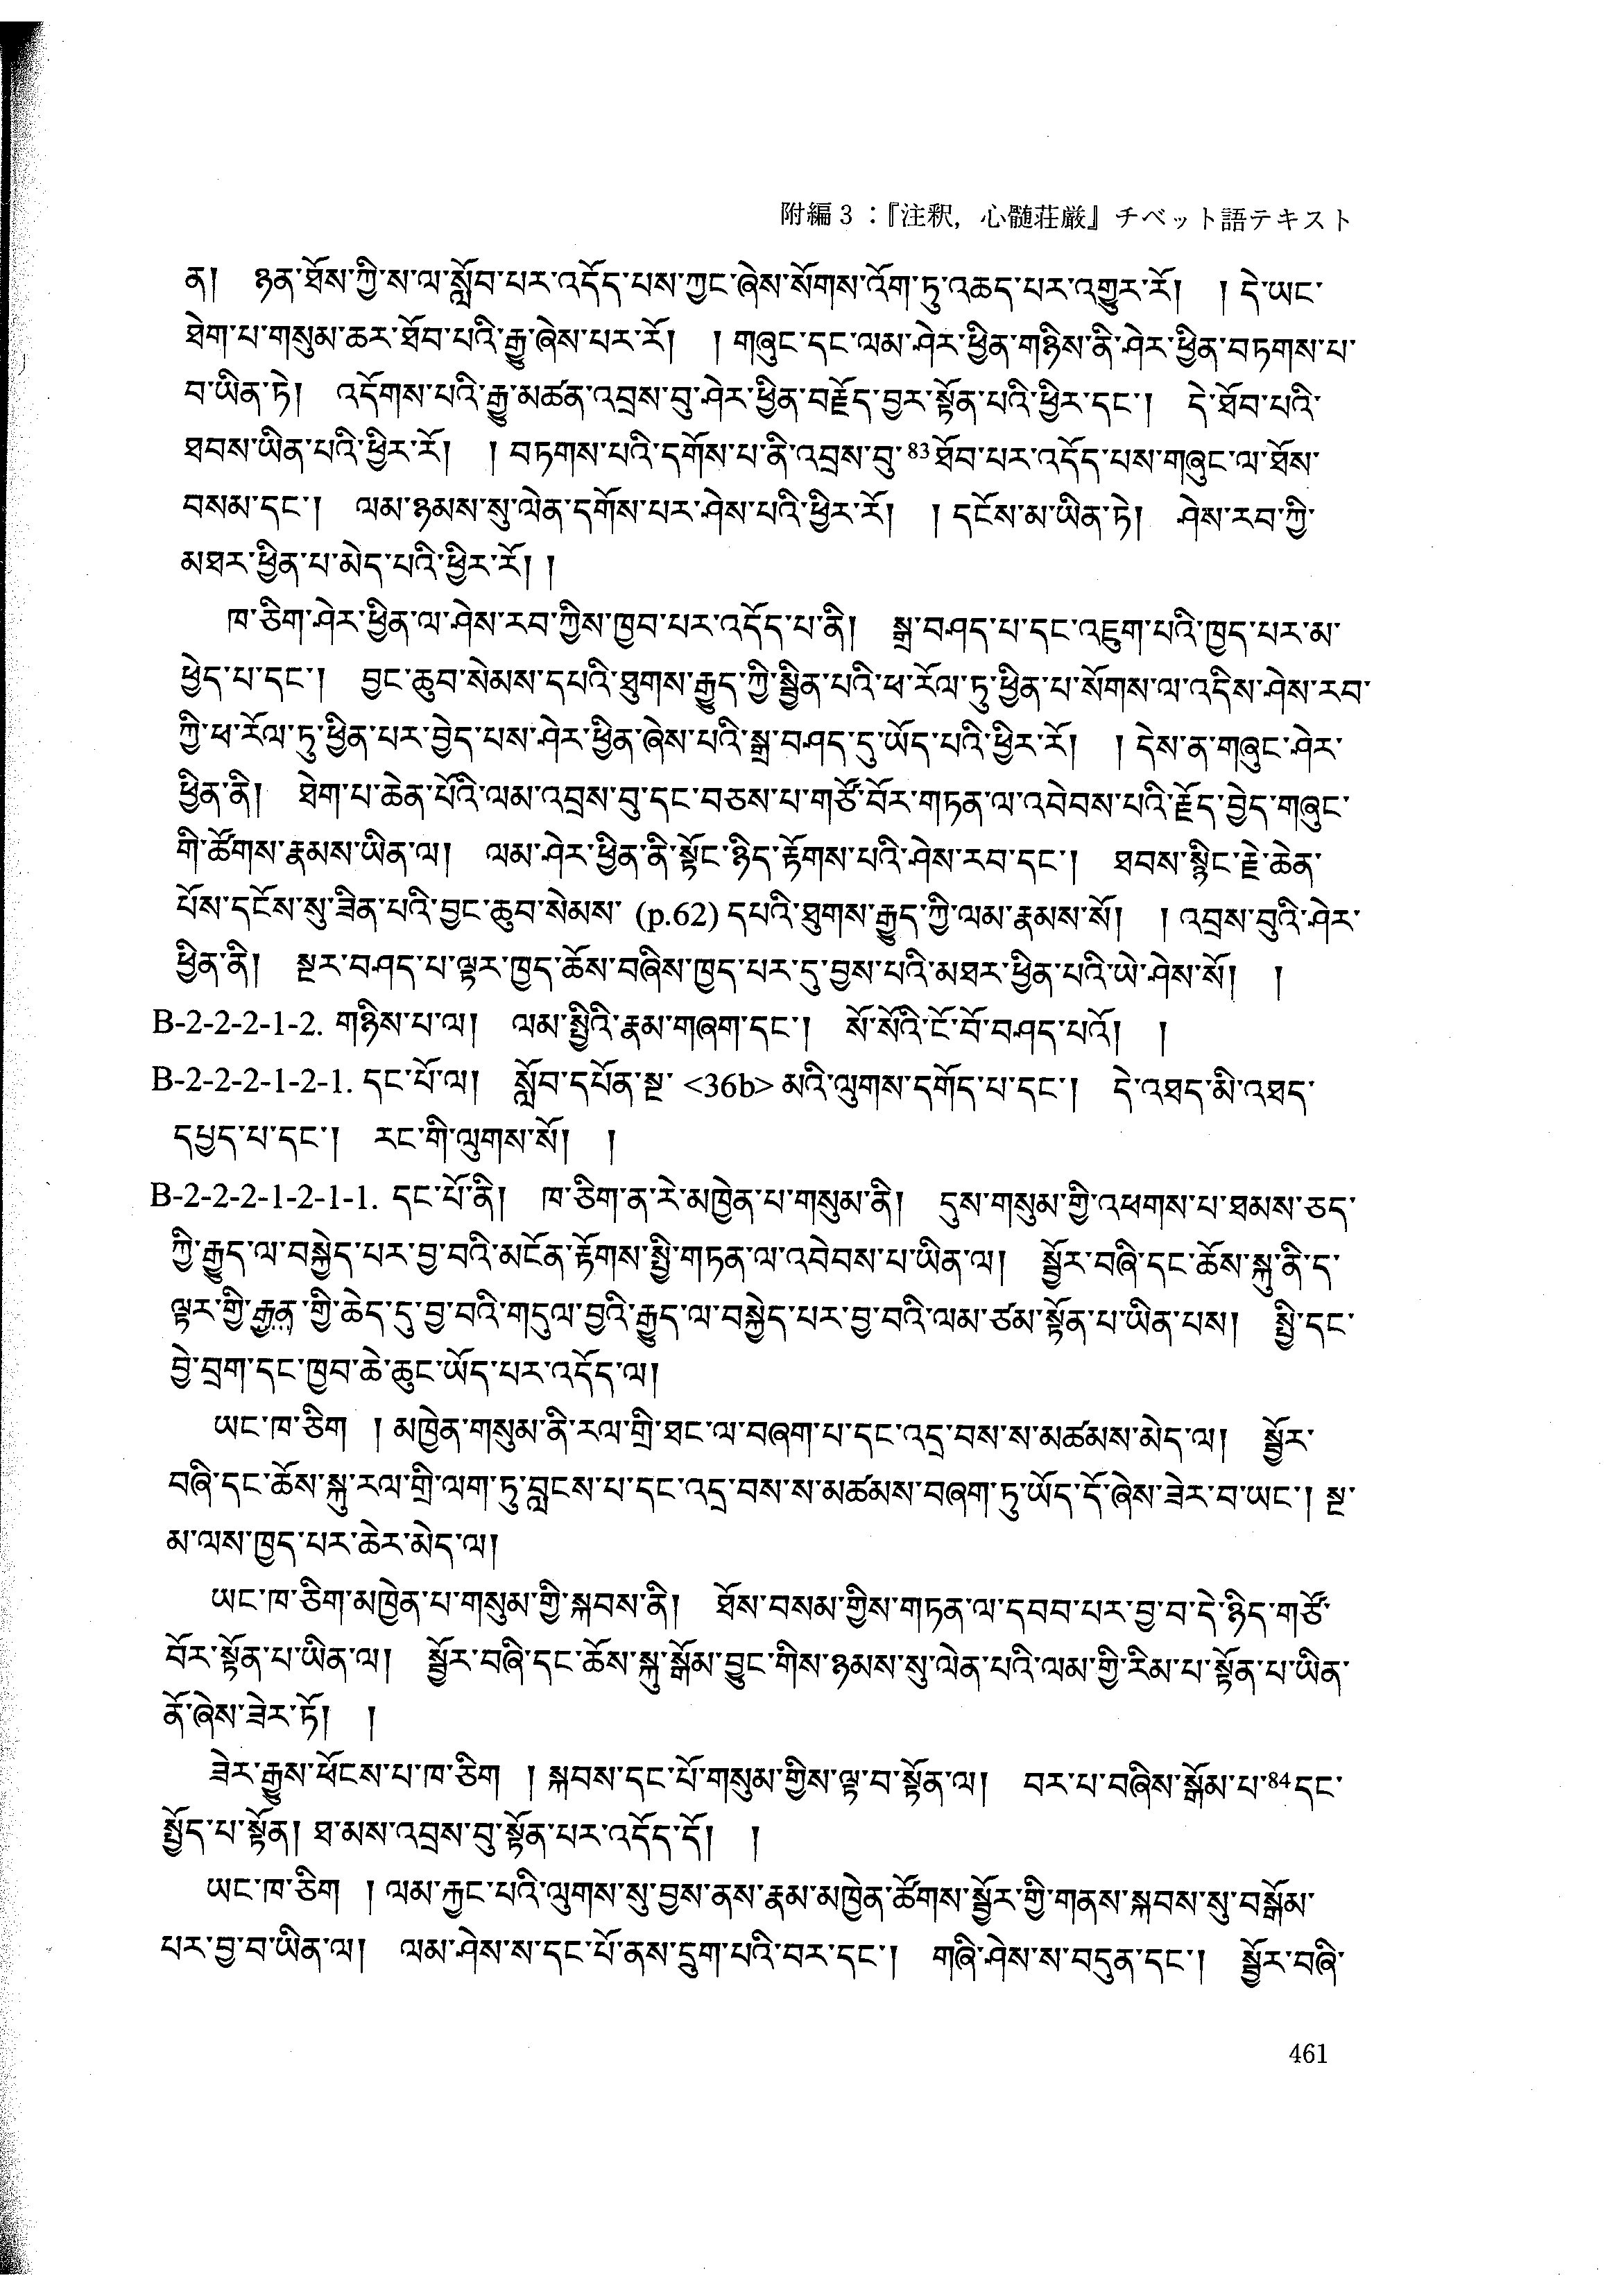 附編3：『注釈，心髄荘厳』チベット語テキスト
ན། ཉན་ཐོས་ཀྱི་ས་ལ་སློབ་པར་འདོད་པས་ཀྱང་ཞེས་སོགས་འོག་ཏུ་འཆད་པར་འགྱུར་རོ། །དེ་ཡང་
ཐེག་པ་གསུམ་ཆར་ཐོབ་པའི་རྒྱུ་ཞེས་པར་རོ། །གཞུང་དང་ལམ་ཤེར་ཕྱིན་གཉིས་ནི་ཤེར་ཕྱིན་བཏགས་པ་
བ་ཡིན་ཏེ། འདོགས་པའི་རྒྱུ་མཚན་འབྲས་བུ་ཤེར་ཕྱིན་བརྗོད་བྱར་སྟོན་པའི་ཕྱིར་དང་། དེ་ཐོབ་པའི་
ཐབས་ཡིན་པའི་ཕྱིར་རོ། །བཏགས་པའི་དགོས་པ་ནི་འབྲས་བུ་83ཐོབ་པར་འདོད་པས་གཞུང་ལ་ཐོས་
བསམ་དང་། ལམ་ཉམས་སུ་ལེན་དགོས་པར་ཤེས་པའི་ཕྱིར་རོ། །དངོས་མ་ཡིན་ཏེ། ཤེས་རབ་ཀྱི་
མཐར་ཕྱིན་པ་མེད་པའི་ཕྱིར་རོ།།
ཁ་ཅིག་ཤེར་ཕྱིན་ལ་ཤེས་རབ་ཀྱིས་ཁྱབ་པར་འདོད་པ་ནི། སྒྲ་བཤད་པ་དང་འཇུག་པའི་ཁྱད་པར་མ་
ཕྱེད་པ་དང་། བྱང་ཆུབ་སེམས་དཔའི་ཐུགས་རྒྱུད་ཀྱི་སྦྱིན་པའི་ཕ་རོལ་ཏུ་ཕྱིན་པ་སོགས་ལ་འདིས་ཤེས་རབ་
ཀྱི་ཕ་རོལ་ཏུ་ཕྱིན་པར་བྱེད་པས་ཤེར་ཕྱིན་ཞེས་པའི་སྒྲ་བཤད་དུ་ཡོད་པའི་ཕྱིར་རོ། །དེས་ན་གཞུང་ཤེར་
ཕྱིན་ནི། ཐེག་པ་ཆེན་པོའི་ལམ་འབྲས་བུ་དང་བཅས་པ་གཙོ་བོར་གཏན་ལ་འབེབས་པའི་རྗོད་བྱེད་གཞུང་
གི་ཚོགས་རྣམས་ཡིན་ལ། ལམ་ཤེར་ཕྱིན་ནི་སྟོང་ཉིད་རྟོགས་པའི་ཤེས་རབ་དང་། ཐབས་སྙིང་རྗེ་ཆེན་
པོས་དངོས་སུ་ཟིན་པའི་བྱང་ཆུབ་སེམས་ (p.62) དཔའི་ཐུགས་རྒྱུད་ཀྱི་ལམ་རྣམས་སོ། །འབྲས་བུའི་ཤེར་
ཕྱིན་ནི། སྔར་བཤད་པ་ལྟར་ཁྱད་ཆོས་བཞིས་ཁྱད་པར་དུ་བྱས་པའི་མཐར་ཕྱིན་པའི་ཡེ་ཤེས་སོ། །
B-2-2-2-1-2. གཉིས་པ་ལ། ལམ་སྤྱིའི་རྣམ་གཞག་དང་། སོ་སོའི་ངོ་བོ་བཤད་པའོ། །
B-2-2-2-1-2-1. དང་པོ་ལ། སློབ་དཔོན་སྔ་ <36b> མའི་ལུགས་དགོད་པ་དང་། དེ་འཐད་མི་འཐད་
དཔྱད་པ་དང་། རང་གི་ལུགས་སོ། །
B-2-2-2-1-2-1-1. དང་པོ་ནི། ཁ་ཅིག་ན་རེ་མཁྱེན་པ་གསུམ་ནི། དུས་གསུམ་གྱི་འཕགས་པ་ཐམས་ཅད་
ཀྱི་རྒྱུད་ལ་བསྐྱེད་པར་བྱ་བའི་མངོན་རྟོགས་སྤྱི་གཏན་ལ་འབེབས་པ་ཡིན་ལ། སྦྱོར་བཞི་དང་ཆོས་སྐུ་ནི་ད་
ལྟར་གྱི་རྒྱན་གྱི་ཆེད་དུ་བྱ་བའི་གདུལ་བྱའི་རྒྱུད་ལ་བསྐྱེད་པར་བྱ་བའི་ལམ་ཙམ་སྟོན་པ་ཡིན་པས། སྤྱི་དང་
བྱེ་བྲག་དང་ཁྱབ་ཆེ་ཆུང་ཡོད་པར་འདོད་ལ།
ཡང་ཁ་ཅིག །མཁྱེན་གསུམ་ནི་རལ་གྲི་ཐང་ལ་བཞག་པ་དང་འདྲ་བས་ས་མཚམས་མེད་ལ། སྦྱོར་
བཞི་དང་ཆོས་སྐུ་རལ་གྲི་ལག་ཏུ་བླངས་པ་དང་འདྲ་བས་ས་མཚམས་བཞག་ཏུ་ཡོད་དོ་ཞེས་ཟེར་བ་ཡང་། སྔ་
མ་ལས་ཁྱད་པར་ཆེར་མེད་ལ།
ཡང་ཁ་ཅིག་མཁྱེན་པ་གསུམ་གྱི་སྐབས་ནི། ཐོས་བསམ་གྱིས་གཏན་ལ་དབབ་པར་བྱ་བ་དེ་ཉིད་གཙོ་
བོར་སྟོན་པ་ཡིན་ལ། སྦྱོར་བཞི་དང་ཆོས་སྐུ་སྒོམ་བྱུང་གིས་ཉམས་སུ་ལེན་པའི་ལམ་གྱི་རིམ་པ་སྟོན་པ་ཡིན་
ནོ་ཞེས་ཟེར་ཏོ། །
ཟེར་རྒྱུས་ཕོངས་པ་ཁ་ཅིག །སྐབས་དང་པོ་གསུམ་གྱིས་ལྟ་བ་སྟོན་ལ། བར་པ་བཞིས་སྒོམ་པ་84དང་
སྤྱོད་པ་སྟོན། ཐ་མས་འབྲས་བུ་སྟོན་པར་འདོད་དོ། །
ཡང་ཁ་ཅིག །ལམ་རྐྱང་པའི་ལུགས་སུ་བྱས་ནས་རྣམ་མཁྱེན་ཚོགས་སྦྱོར་གྱི་གནས་སྐབས་སུ་བསྒོམ་
པར་བྱ་བ་ཡིན་ལ། ལམ་ཤེས་ས་དང་པོ་ནས་དྲུག་པའི་བར་དང་། གཞི་ཤེས་ས་བདུན་དང་། སྦྱོར་བཞི་
461